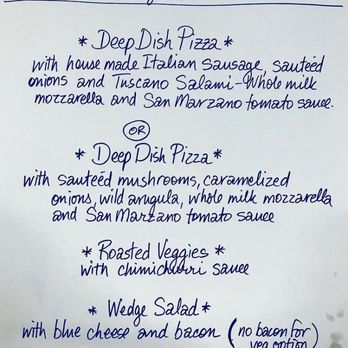 * Deep Dish Pizza *
with house made Italian sausage, sauteéd
onions and Tuscano Salami - Whole milk
mozzarella and San Marzano tomato sauce.
OR
* Deep Dish Pizza *
with sauteéd mushrooms, caramelized
onions, wild arugula, whole milk mozzarella
and San Marzano tomato sauce
* Roasted Veggies *
with chimichurri sauce
* Wedge Salad *
with blue cheese and bacon (no bacon for
veg option)